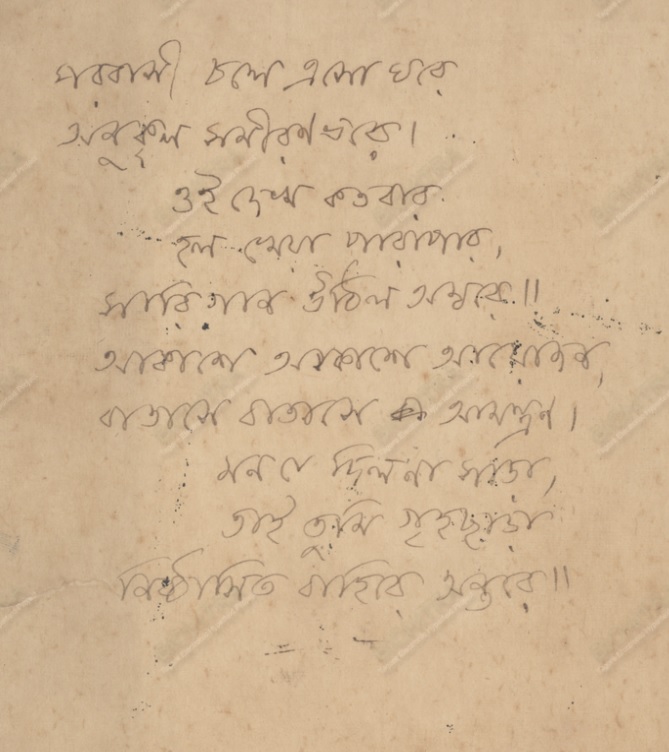 পরবাসী চলে এসো ঘরে
অনুকূল সমীরণ ভরে।
ওই দেখ কতবার
হল খেয়া পারাপার,
সারিগান উঠিল অম্বরে॥
আকাশে আকাশে আয়োজন,
বাতাসে বাতাসে আমন্ত্রণ।
মন যে দিল না সাড়া,
তাই তুমি গৃহছাড়া
নির্বাসিত বাহিরে অন্তরে॥